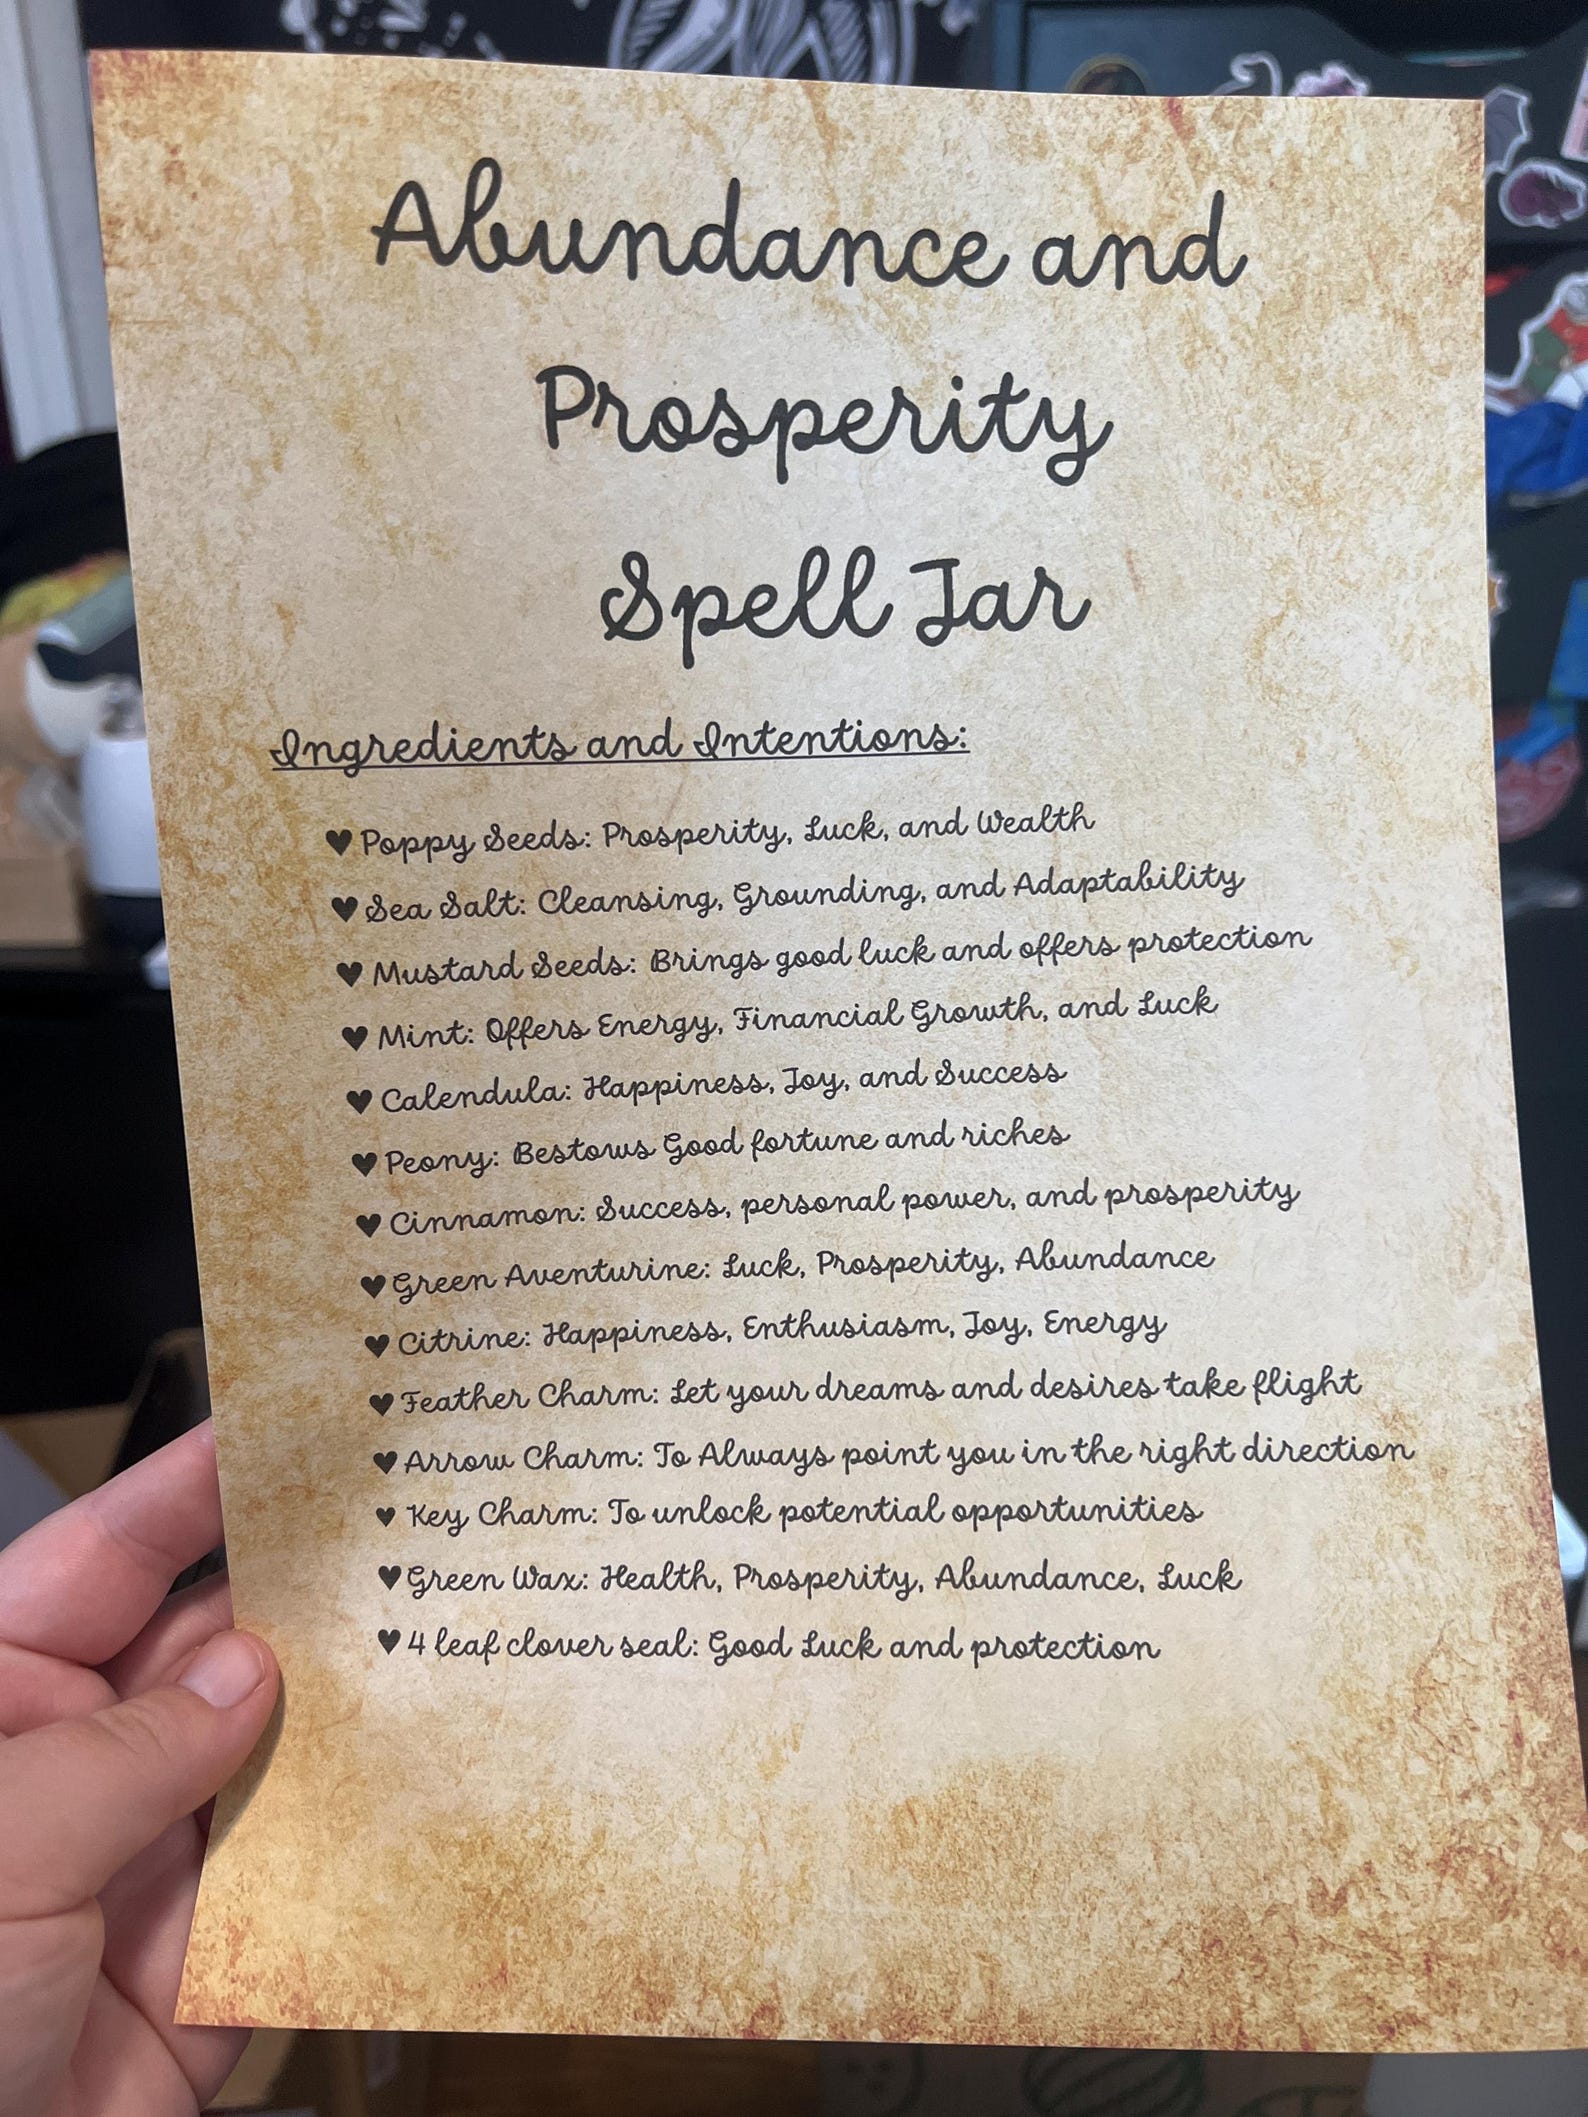 Abundance and
Prosperity
Spell Jar
Ingredients and Intentions:
♥ Poppy Seeds: Prosperity, Luck, and Wealth
♥ Sea Salt: Cleansing, Grounding, and Adaptability
♥ Mustard Seeds: Brings good luck and offers protection
♥ Mint: Offers Energy, Financial Growth, and Luck
♥ Calendula: Happiness, Joy, and Success
♥ Peony: Bestows Good fortune and riches
♥ Cinnamon: Success, personal power, and prosperity
♥ Green Aventurine: Luck, Prosperity, Abundance
♥ Citrine: Happiness, Enthusiasm, Joy, Energy
♥ Feather Charm: Let your dreams and desires take flight
♥ Arrow Charm: To Always point you in the right direction
♥ Key Charm: To unlock potential opportunities
♥ Green Wax: Health, Prosperity, Abundance, Luck
♥ 4 leaf clover seal: Good Luck and protection